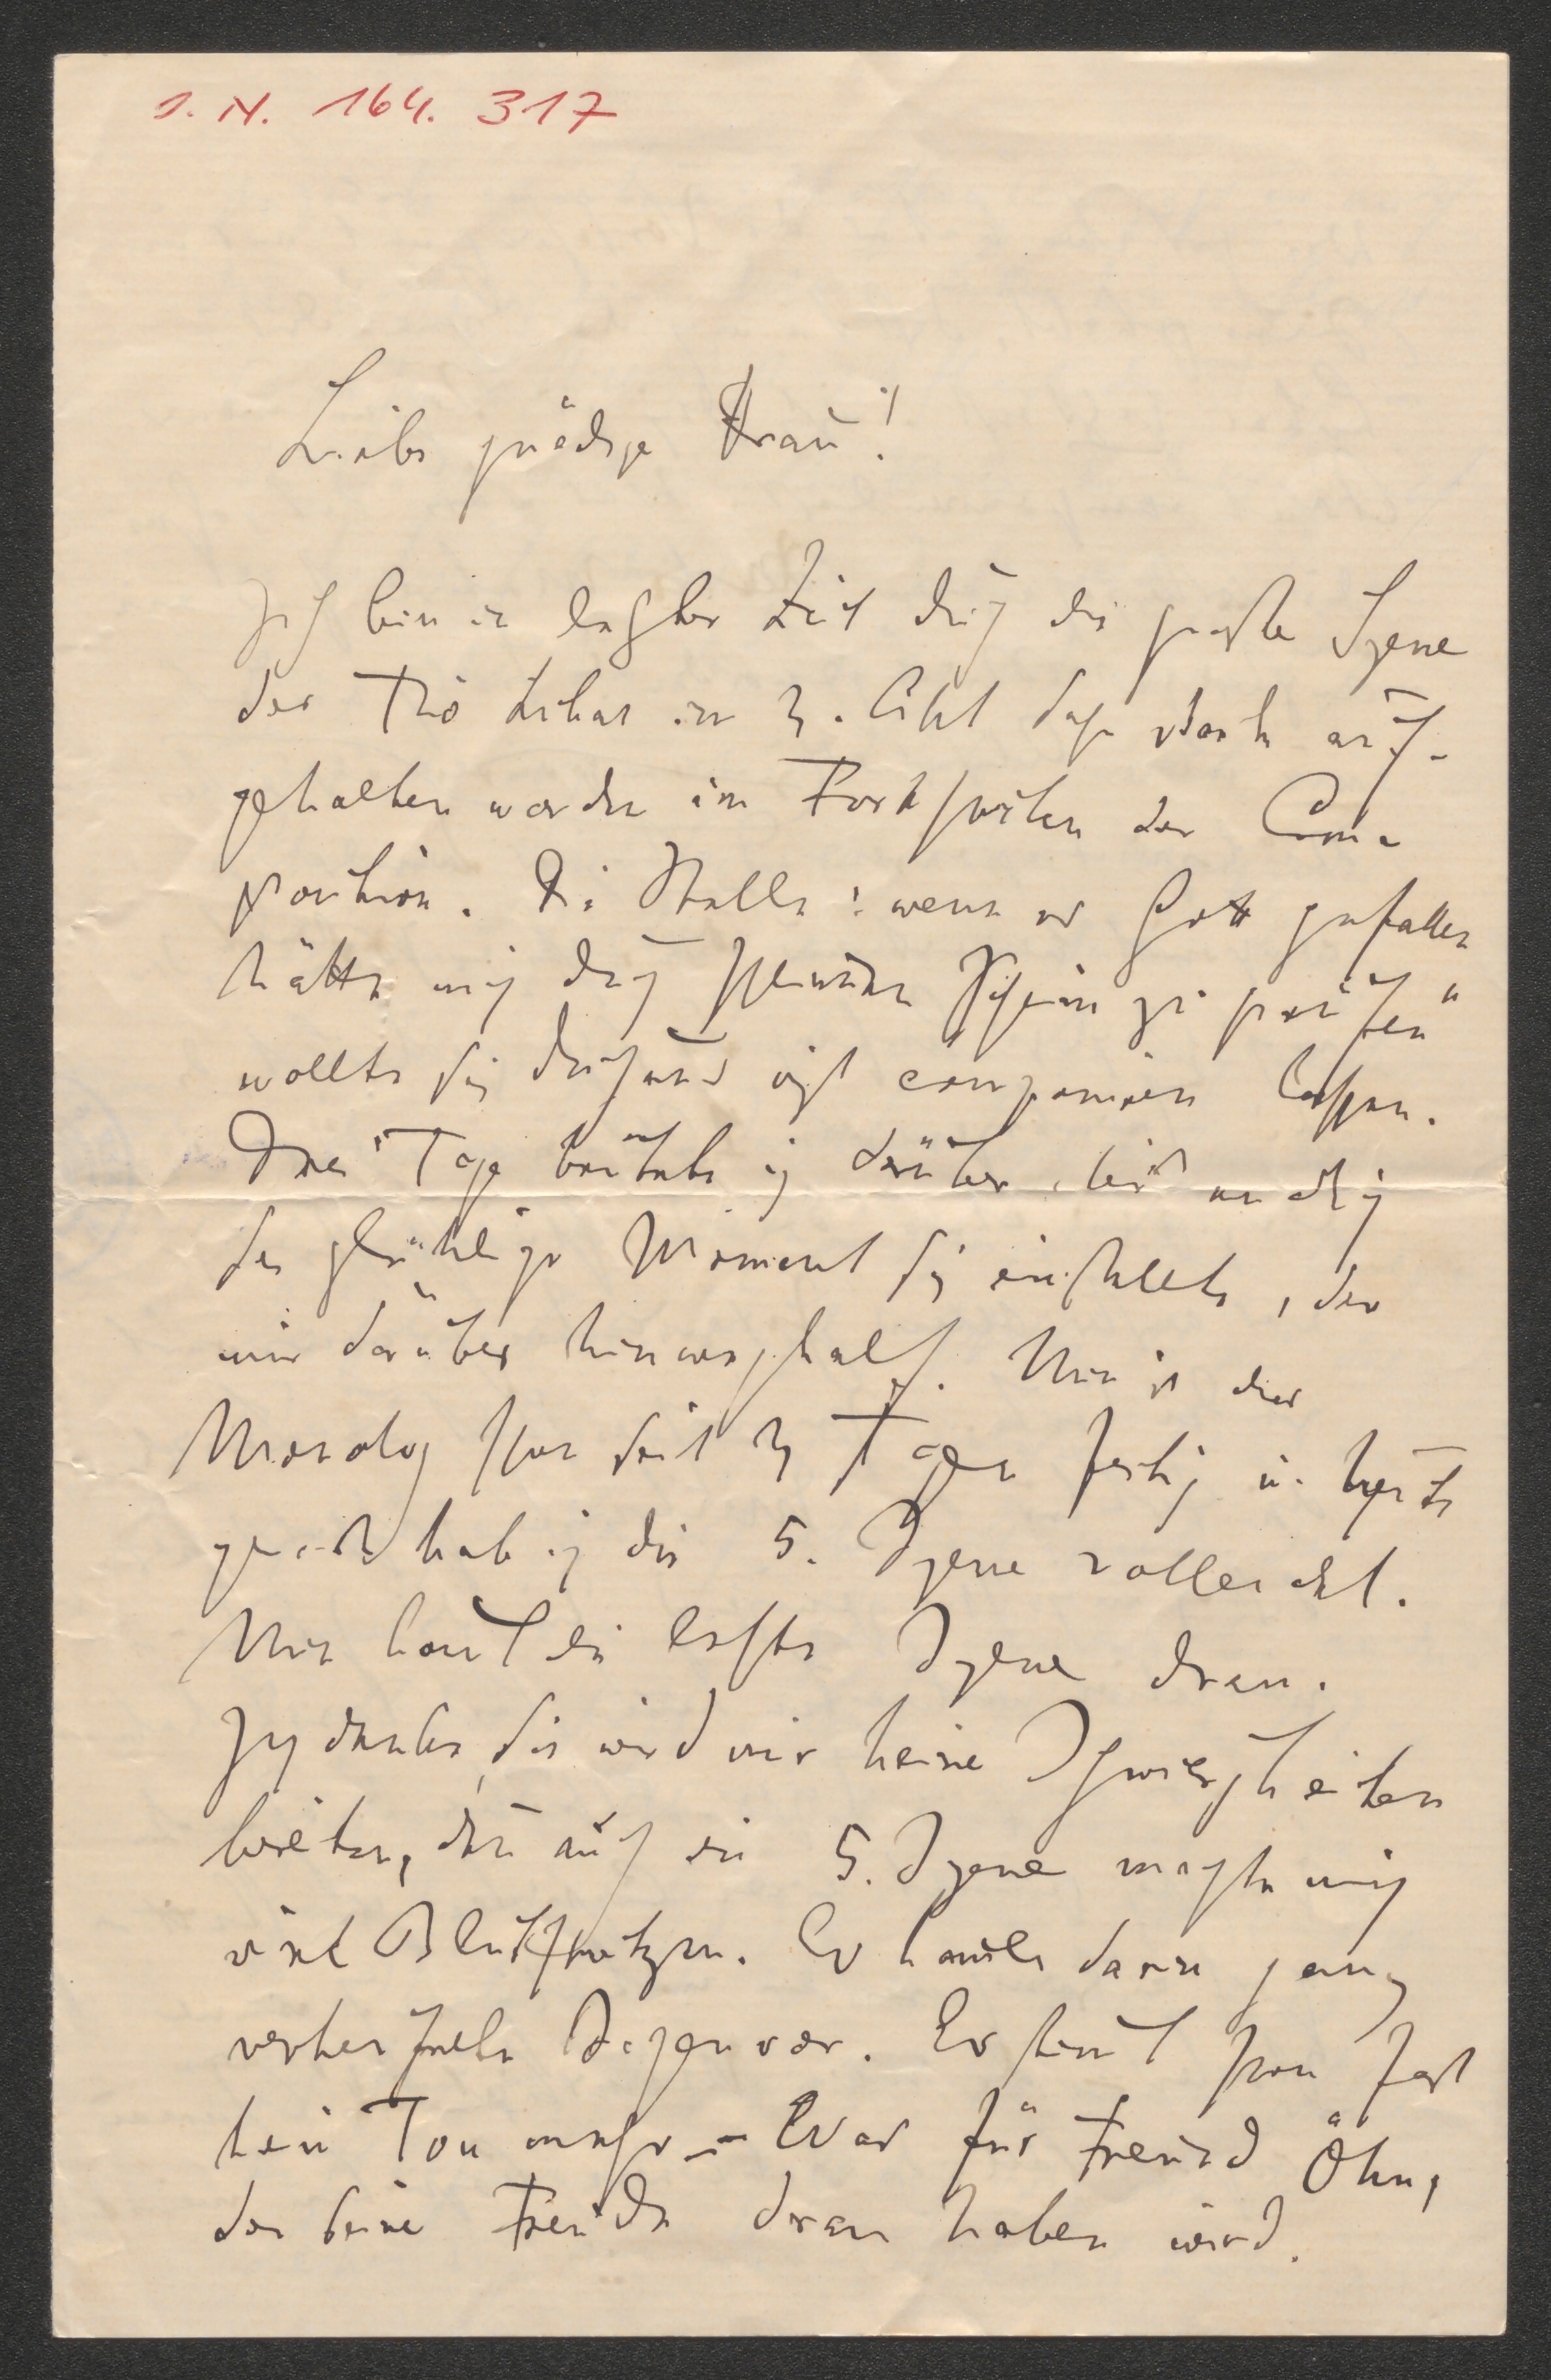 I. N. 164.317
Liebe gnädige Frau!
Ich bin in letzter Zeit durch die große Szene
des Trio Lukas im 3. Akt sehr stark auf-
gehalten worden im Fortschreiten der Com-
position. Die Stelle: wenn es Gott gefallen
hätte mich durch
wollte sich durchaus nicht componieren lassen.
Drei Tage brütete ich darüber, bis endlich
der glückliche Moment sich einstellte, der
mir darüber hinweghalf. Nun ist der
Monolog schon seit 3 Tagen fertig u. heute
gerade hab ich die 5. Szene vollendet.
Nun kommt die letzte Szene dran.
Ich denke, die wird mir keine Schwierigkeiten
bereiten, denn auch die 5. Szene machte mich
viel Blutschwitzen. Es kamen darin ganz
verteufelte Dinge vor. Es stimmt schon fast
kein Ton mehr – Was für Freund Öhn,
der seine Freude dran haben wird.